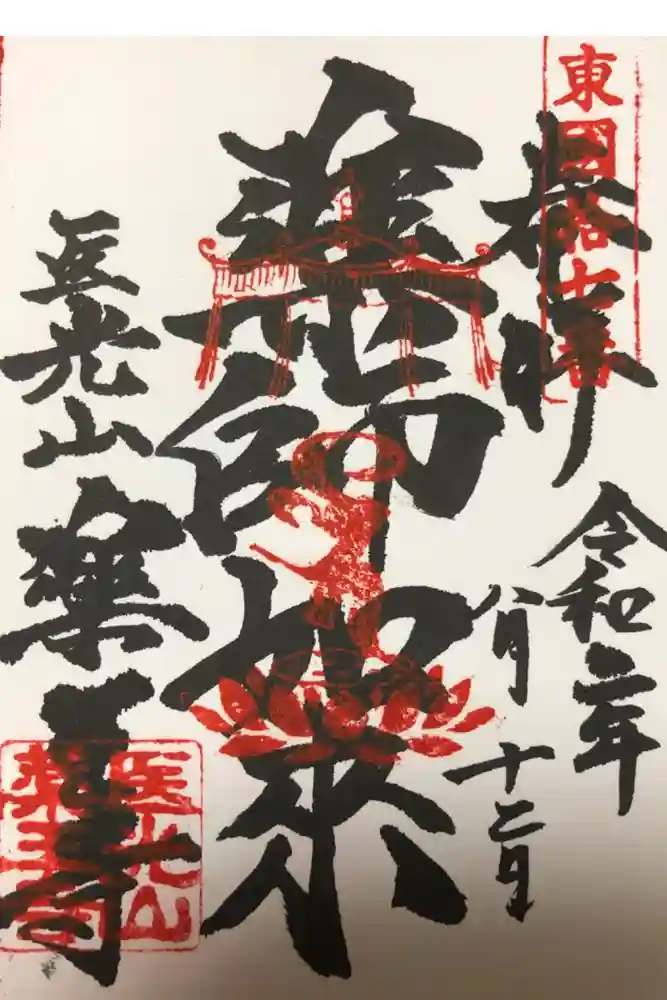 東國拾七番
奉拝
令和二年
八月十二日
薬師如来
医光山 薬王寺
医光山
薬王寺